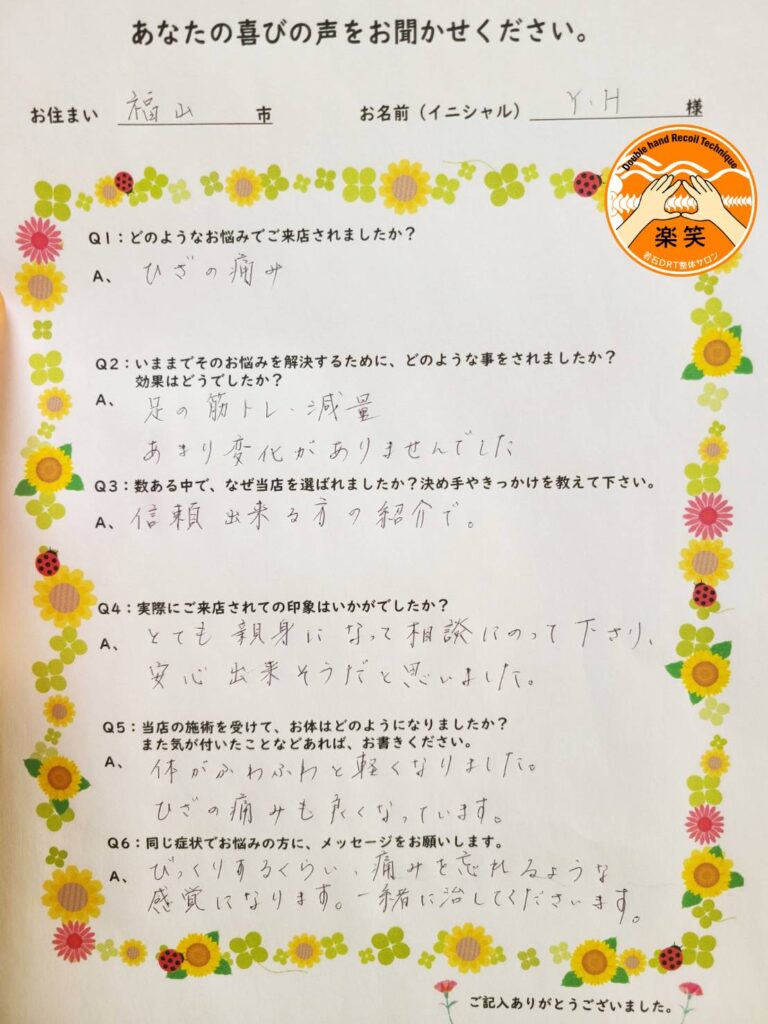 あなたの喜びの声をお聞かせください。
お住まい 福山 市 お名前（イニシャル） Y.H 様
Double hand Recoil Technique
楽笑
若石DRT整体サロン
Q1：どのようなお悩みでご来店されましたか？
A、ひざの痛み
Q2：いままでそのお悩みを解決するために、どのような事をされましたか？
効果はどうでしたか？
A、足の筋トレ・減量
あまり変化がありませんでした
Q3：数ある中で、なぜ当店を選ばれましたか？決め手やきっかけを教えて下さい。
A、信頼出来る方の紹介で。
Q4：実際にご来店されての印象はいかがでしたか？
A、とても親身になって相談にのって下さり、
安心出来そうだと思いました。
Q5：当店の施術を受けて、お体はどのようになりましたか？
また気が付いたことなどあれば、お書きください。
A、体がふわふわと軽くなりました。
ひざの痛みも良くなっています。
Q6：同じ症状でお悩みの方に、メッセージをお願いします。
A、びっくりするくらい、痛みを忘れるような
感覚になります。一緒に治してくださいます。
ご記入ありがとうございました。